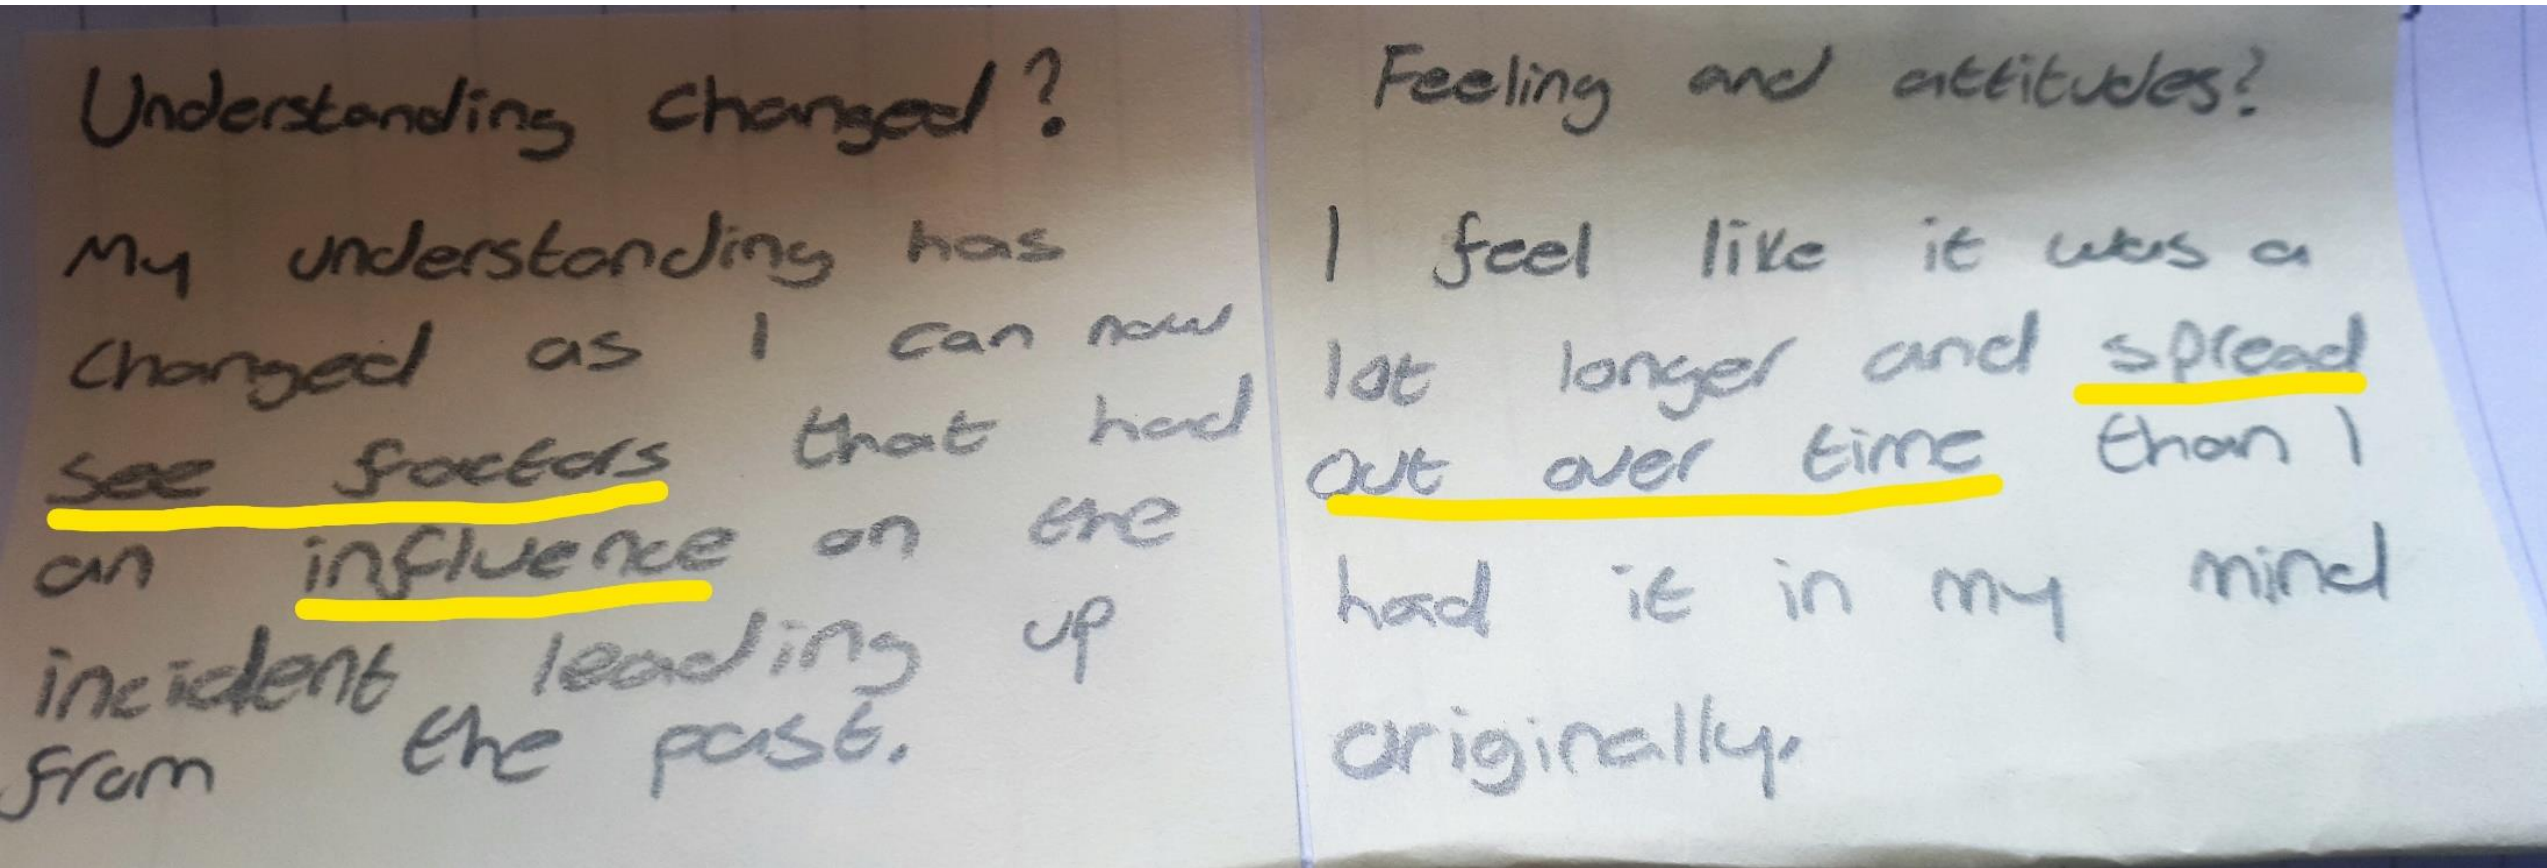 Understanding changed?
My understanding has
changed as I can now
see factors that had
an influence on the
incident leading up
from the past.
Feeling and attitudes?
I feel like it was a
lot longer and spread
out over time than I
had it in my mind
originally.